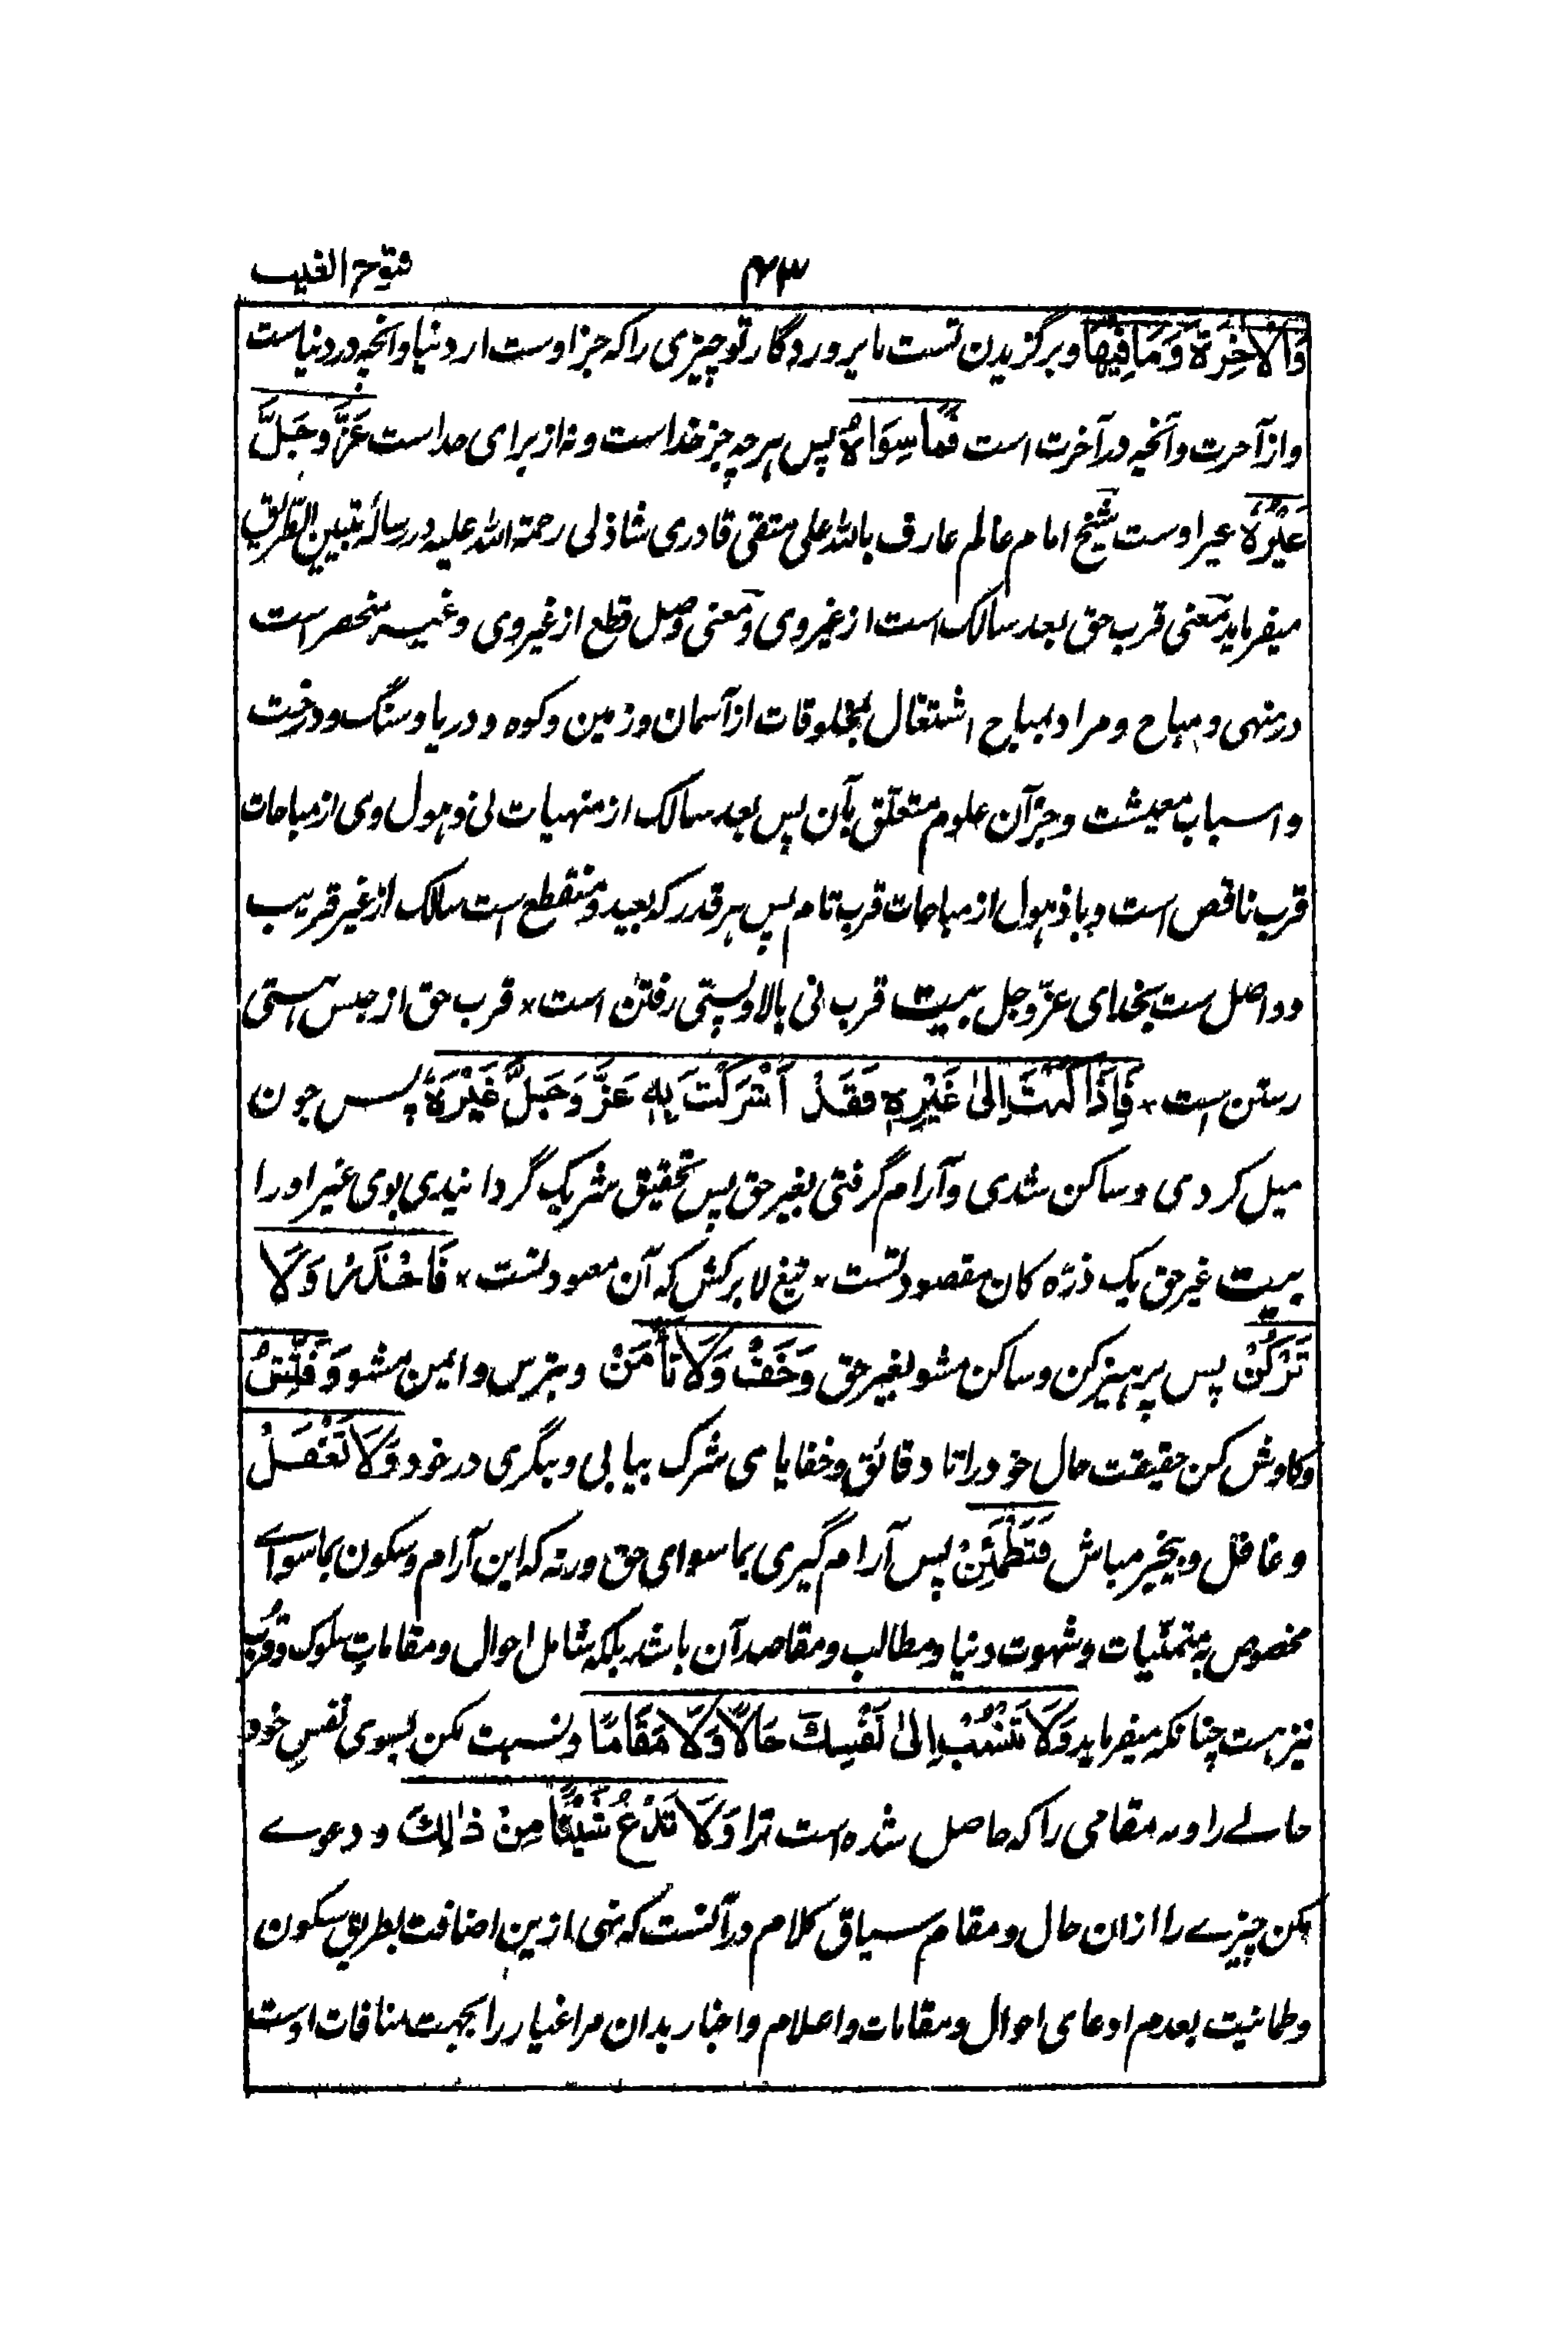 فتوح الغیب
۴۳
وَالْاٰخِرَةَ وَمَا فِيْهَا و برگزیدن تست با پروردگار تو چیزی را که جز اوست از دنیا و آنچه در دنیاست
و از آخرت و آنچه در آخرت است فَمَا سِوَاهُ پس هر چه جز خداست و نه از برای خداست عَزَّ وَجَلَّ
غَيْرُهُ غیر اوست شیخ امام عالم عارف بالله علی متقی قادری شاذلی رحمة الله علیه در رسالهٔ تبیین الطریق
میفرماید معنی قرب حق بعد سالک است از غیر وی و معنی وصل قطع از غیر وی و غیر منحصر است
در منهی و مباح و مراد بمباح اشتغال بمخلوقات از آسمان و زمین و کوه و دریا و سنگ و درخت
و اسباب معیشت و جز آن علوم متعلق بآن پس بعد سالک از منهیات بی ذهول وی از مباحات
قرب ناقص است و با ذهول از مباحات قرب تام پس هر قدر که بعید و منقطع است سالک از غیر قریب
و واصل ست بخدای عزّ و جل بیت قرب نی بالا و پستی رفتن است × قرب حق از حبس هستی
رستن است × فَاِذَا رَكَنْتَ اِلٰى غَيْرِهٖ فَقَدْ اَشْرَكْتَ بِهٖ عَزَّ وَجَلَّ غَيْرَهٗ پس چون
میل کردی و ساکن شدی و آرام گرفتی بغیر حق پس بتحقیق شریک گردانیدی بوی غیر او را
بیت غیر حق یک ذرّه کان مقصود تست × تیغ لا برکش که آن معبود تست × فَاحْذَرْ وَلَا
تَرْكَنْ پس پرهیز کن و ساکن مشو بغیر حق وَخَفْ وَلَا تَأْمَنْ و بترس و ایمن مشو وَفَتِّشْ
و کاوش کن حقیقت حال خود را تا دقائق و خفایای شرک بیابی و بنگری در خود وَلَا تَغْفَلْ
و غافل و بیخبر مباش فَتَطْمَئِنْ پس آرام گیری بماسوای حق و رنه که این آرام و سکون بماسواے
مخصوص بمتمنّیات و شهوت دنیا و مطالب و مقاصد آن باشد بلکه شامل احوال و مقامات سلوک و قرب
نیز هست چنانکه میفرماید وَلَا تَنْسُبْ اِلٰى نَفْسِكَ حَالًا وَلَا مَقَامًا و نسبت مکن بسوی نفس خود
حالے را و نه مقامی را که حاصل شده است ترا وَلَا تَدَّعِ شَيْئًا مِنْ ذٰلِكَ و دعوے
مکن چیزے را ازان حال و مقام سیاق کلام در آنست که نهی ازین اضافت بطریق سکون
و طمانیت بعدم ادعای احوال و مقامات و اعلام و اخبار بدان مر اغیار را بجهت منافات اوست